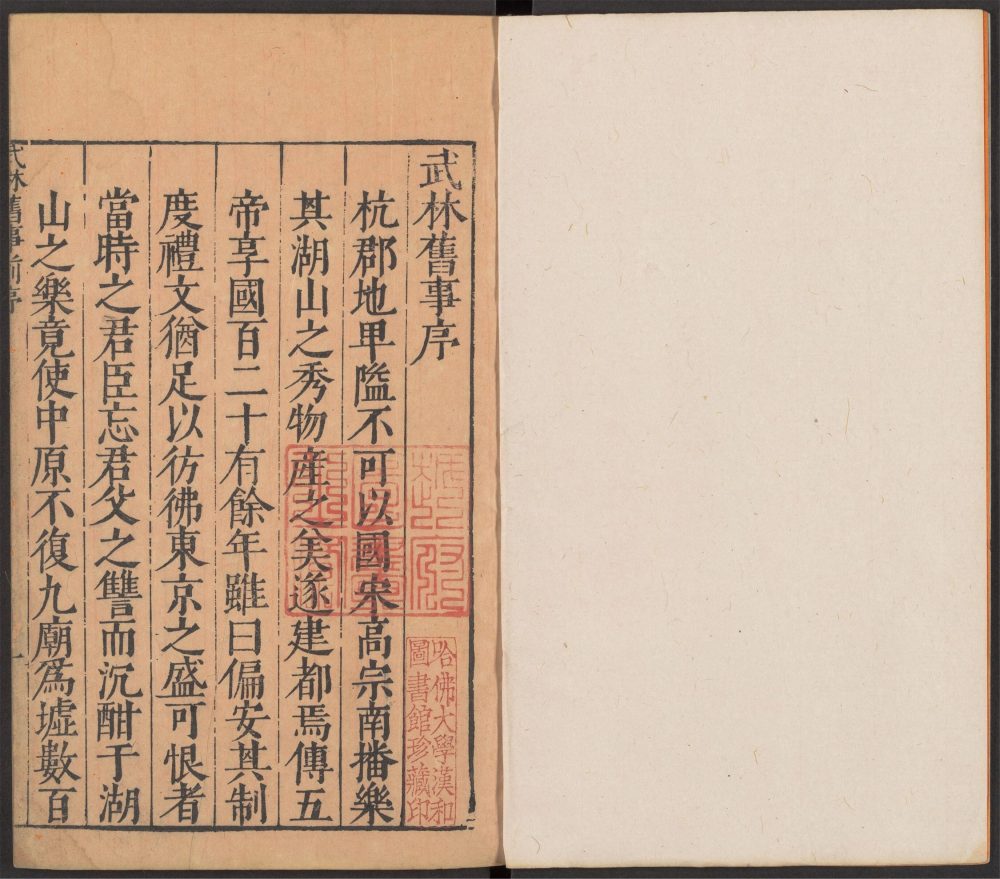 武林舊事序
杭郡地卑隘不可以國宋高宗南播樂
其湖山之秀物産之美遂建都焉傳五
帝享國百二十有餘年雖曰偏安其制
度禮文猶足以彷彿東京之盛可恨者
當時之君臣忘君父之讐而沉酣于湖
山之樂竟使中原不復九廟爲墟數百
武林舊事前序
一
哈佛大學漢和
圖書館珍藏印